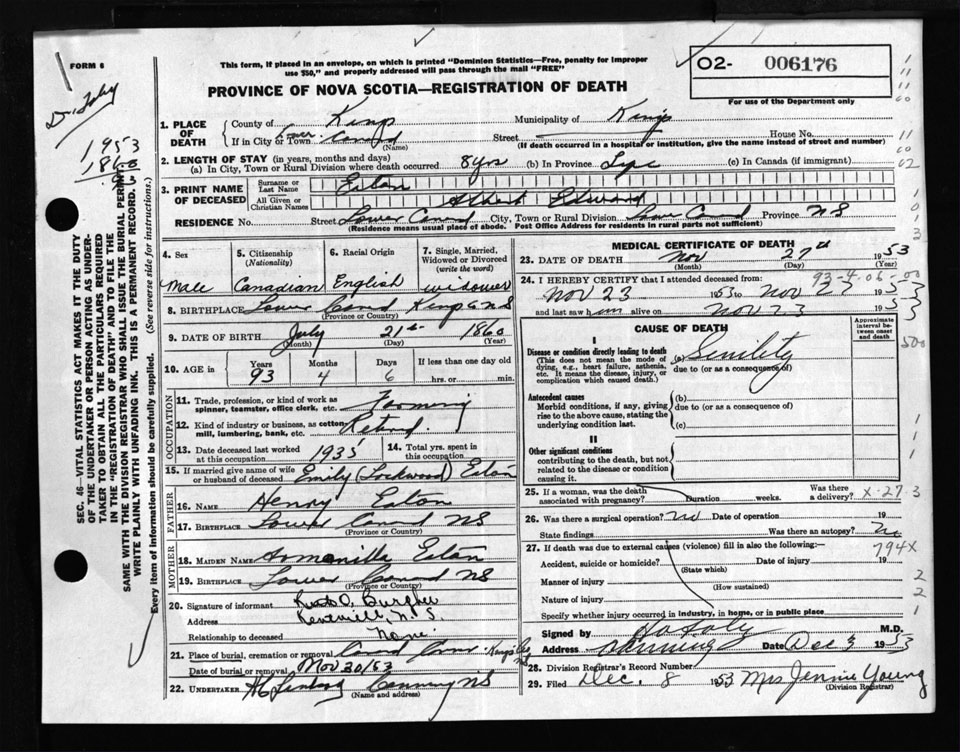 FORM 6
This form, if placed in an envelope, on which is printed "Dominion Statistics—Free, penalty for improper
use $50," and properly addressed will pass through the mail "FREE"
O2- 006176
For use of the Department only
PROVINCE OF NOVA SCOTIA—REGISTRATION OF DEATH
Dr. Foley
1953
1860
93
SEC. 46—VITAL STATISTICS ACT MAKES IT THE DUTY
OF THE UNDERTAKER OR PERSON ACTING AS UNDER-
TAKER TO OBTAIN ALL THE PARTICULARS REQUIRED
IN THE "REGISTRATION OF DEATH" AND TO FILE THE
SAME WITH THE DIVISION REGISTRAR WHO SHALL ISSUE THE BURIAL PERMIT.
WRITE PLAINLY WITH UNFADING INK. THIS IS A PERMANENT RECORD.
Every item of information should be carefully supplied. (See reverse side for instructions.)
1. PLACE OF DEATH
County of Kings Municipality of Kings
If in City or Town Lower Canard (Name) Street House No.
(If death occurred in a hospital or institution, give the name instead of street and number)
2. LENGTH OF STAY (in years, months and days)
(a) In City, Town or Rural Division where death occurred 8 yrs (b) In Province Life (c) In Canada (if immigrant)
3. PRINT NAME OF DECEASED
Surname or Last Name Eaton
All Given or Christian Names Albert Edward
RESIDENCE No. Street Lower Canard City, Town or Rural Division Lower Canard Province NS
(Residence means usual place of abode. Post Office Address for residents in rural parts not sufficient)
4. Sex Male
5. Citizenship (Nationality) Canadian
6. Racial Origin English
7. Single, Married, Widowed or Divorced (write the word) widower
8. BIRTHPLACE Lower Canard Kings Co NS
(Province or Country)
9. DATE OF BIRTH July 21st 1860
(Month) (Day) (Year)
10. AGE in Years 93 Months 4 Days 6 If less than one day old hrs. or min.
OCCUPATION
11. Trade, profession, or kind of work as
spinner, teamster, office clerk, etc. Farming
12. Kind of industry or business, as cotton
mill, lumbering, bank, etc. Retired.
13. Date deceased last worked at this occupation 1935
14. Total yrs. spent in this occupation
15. If married give name of wife
or husband of deceased Emily (Lockwood) Eaton
FATHER
16. NAME Henry Eaton
17. BIRTHPLACE Lower Canard NS
(Province or Country)
MOTHER
18. MAIDEN NAME Armanilla Eaton
19. BIRTHPLACE Lower Canard NS
(Province or Country)
20. Signature of informant
Address Kentville, N. S.
Relationship to deceased None
21. Place of burial, cremation or removal Canard Kings Co NS
Date of burial or removal Nov 30/53
22. UNDERTAKER Canning NS
(Name and address)
MEDICAL CERTIFICATE OF DEATH
23. DATE OF DEATH Nov 27th 1953
(Month) (Day) (Year)
93-4-06-00
24. I HEREBY CERTIFY that I attended deceased from:
Nov 23 1953 to Nov 27 1953
and last saw him alive on Nov 23 1953
CAUSE OF DEATH
Approximate interval between onset and death
I
Disease or condition directly leading to death
(This does not mean the mode of
dying, e.g., heart failure, asthenia,
etc. It means the disease, injury, or
complication which caused death.)
(a) Senility
due to (or as a consequence of)
Antecedent causes
Morbid conditions, if any, giving
rise to the above cause, stating the
underlying condition last.
(b)
due to (or as a consequence of)
(c)
II
Other significant conditions
contributing to the death, but not
related to the disease or condition
causing it.
25. If a woman, was the death
associated with pregnancy? Duration weeks. Was there a delivery?
X-27 3
26. Was there a surgical operation? No Date of operation 19
State findings Was there an autopsy? No
27. If death was due to external causes (violence) fill in also the following:—
794X
Accident, suicide or homicide? (State which) Date of injury 19
Manner of injury (How sustained)
Nature of injury
Specify whether injury occurred in industry, in home, or in public place
Signed by M.D.
Address Canning Date Dec 3 1953
28. Division Registrar's Record Number
29. Filed Dec. 8 1953 Mrs Jennie Young
(Division Registrar)